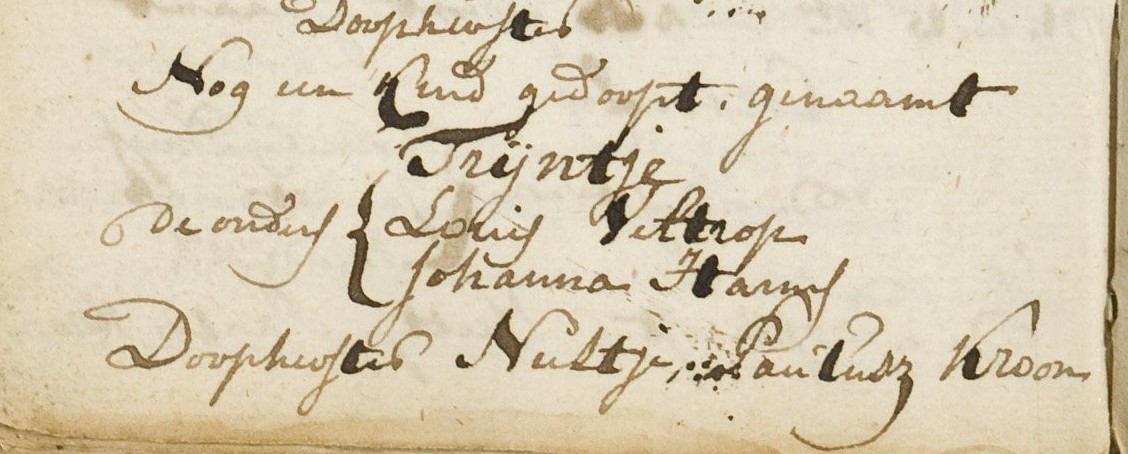 Doophefster
Nog een Kind gedoopt, genaamt
Trijntje
De ouders { Louis Veltrop
Johanna Harms
Doophefster Neeltje, Paulusz Kroon